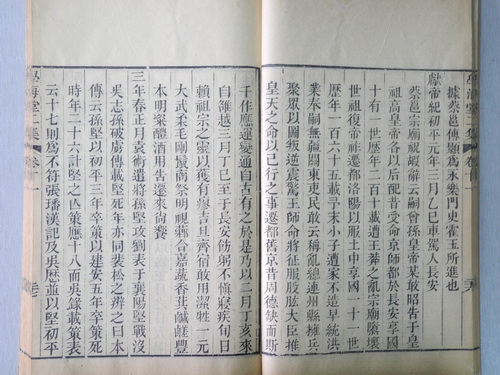 據蔡邕傳顯為永樂門史霍玉所進也
獻帝紀初平元年三月乙巳車駕入長安
蔡邕宗廟祝嘏辭云嗣曾孫皇帝某敢昭告于皇
祖高皇帝各以后配昔受命京師都於長安享國
十有一世歷年二百十載遭王莽之亂宗廟隳壞
世祖復帝祚遷都洛陽以服土中享國一十一世
歷年一百六十五載予末小子遭家不造早統洪
業奉嗣無疆關東吏民敢云稱亂總連州縣擁兵
聚眾以圖叛逆震驚王師命將征服股肱大臣推
皇天之命以已行之事遷都舊京昔周德缺而斯
千作應運變通自古有之於是乃以二月丁亥來
自雒越三月丁巳至于長安飭躬不慎寢疾旬日
賴祖宗之靈以獲有瘳吉旦齊宿敢用潔牲一元
大武柔毛剛鬛商祭明視薌合嘉蔬香萁鹹鹺豐
本明粢醴酒用告遷來尚饗
三年春正月袁術遣將孫堅攻劉表于襄陽堅戰沒
吳志孫破虜傳載堅死年亦同裴松之辨之曰本
傳云孫堅以初平三年卒策以建安五年卒策死
時年二十六計堅之亡策應十八而吳錄載策表
云十七則為不符張璠漢記及吳歷並以堅初平
學海堂二集 卷十一